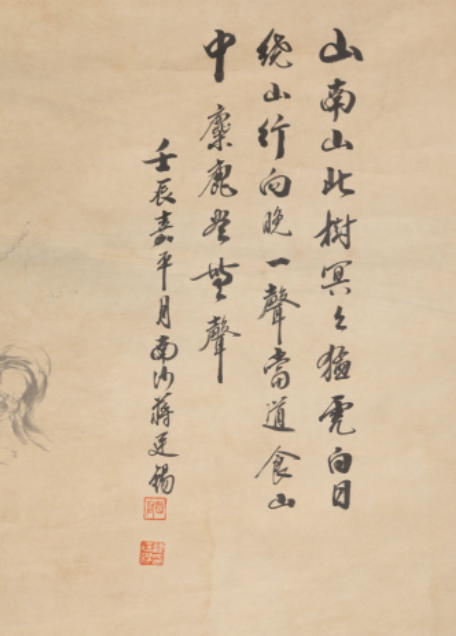 山南山北樹冥々猛虎白日
繞山行向晚一聲當道食山
中麋鹿盡無聲
壬辰嘉平月南沙蔣廷錫